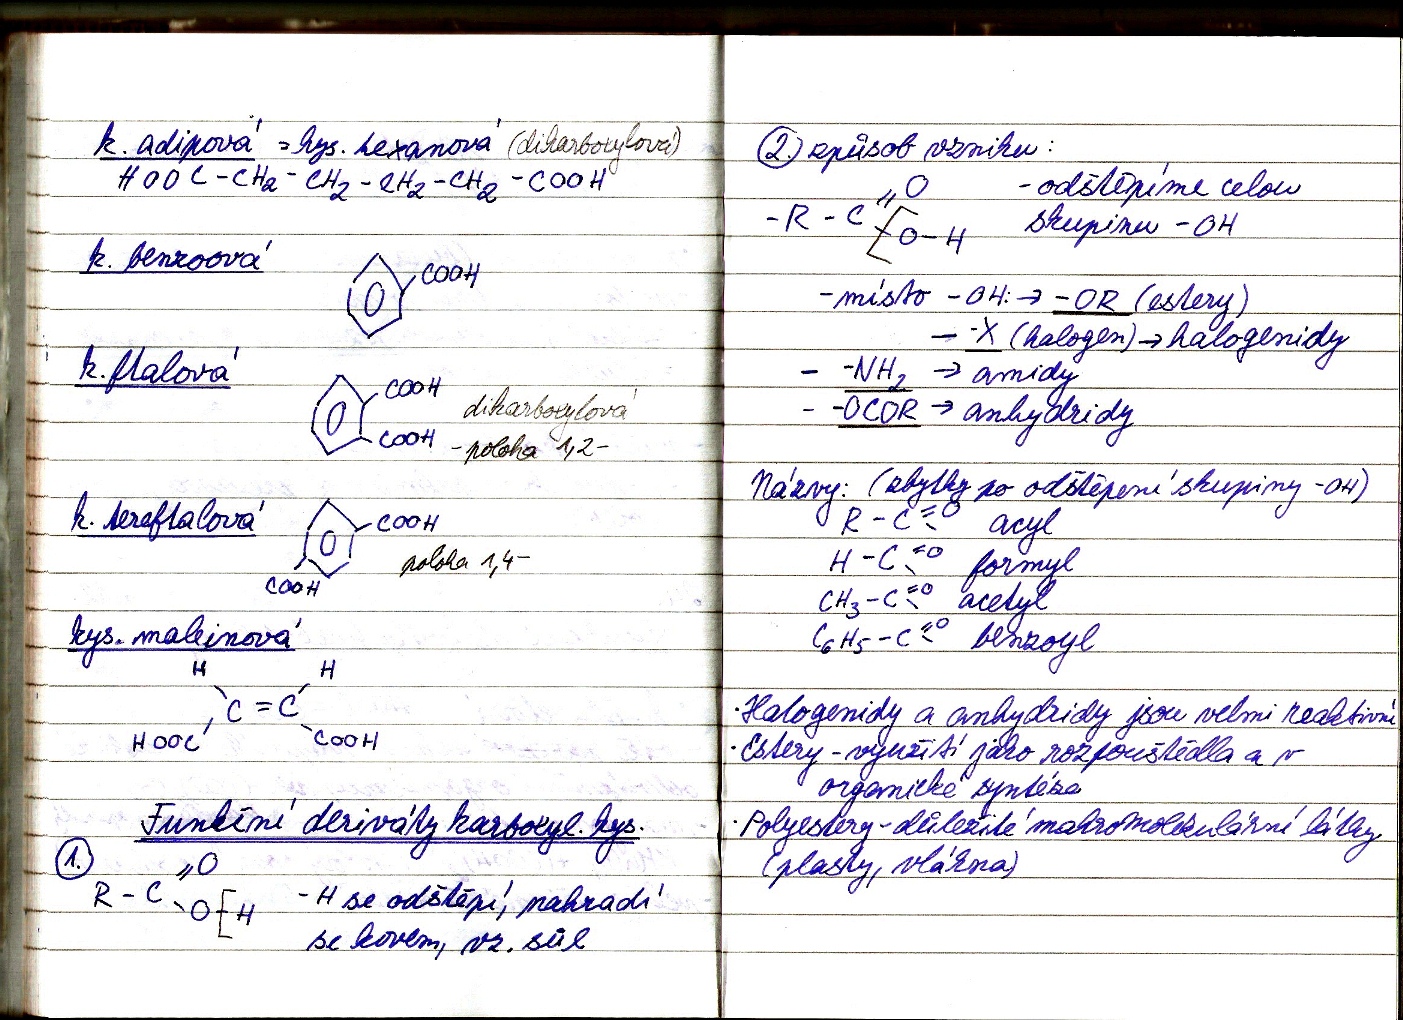 k. adipová = kys. hexanová (dikarboxylová)
HOOC-CH2-CH2-CH2-CH2-COOH
k. benzoová
COOH
k. ftalová
COOH
COOH
dikarboxylová
-poloha 1,2-
k. tereftalová
COOH
COOH
poloha 1,4-
kys. maleinová
H H
C=C
HOOC COOH
Funkční deriváty karboxyl. kys.
1.
R-C=O
O[H
-H se odštěpí, nahradí
se kovem, vz. sůl
2) způsob vzniku:
-R-C=O
[O-H
-odštěpíme celou
skupinu -OH
-místo -OH: → -OR (estery)
- -X (halogen) → halogenidy
- -NH2 → amidy
- -OCOR → anhydridy
Názvy: (zbytky po odštěpení skupiny -OH)
R-C=O acyl
H-C=O formyl
CH3-C=O acetyl
C6H5-C=O benzoyl
·Halogenidy a anhydridy jsou velmi reaktivní
·Estery-využití jako rozpouštědla a v
organické syntéze
·Polyestery-důležité makromolekulární látky
(plasty, vlákna)